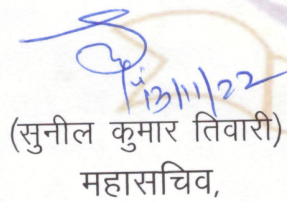 13/11/22
(सुनील कुमार तिवारी)
महासचिव,